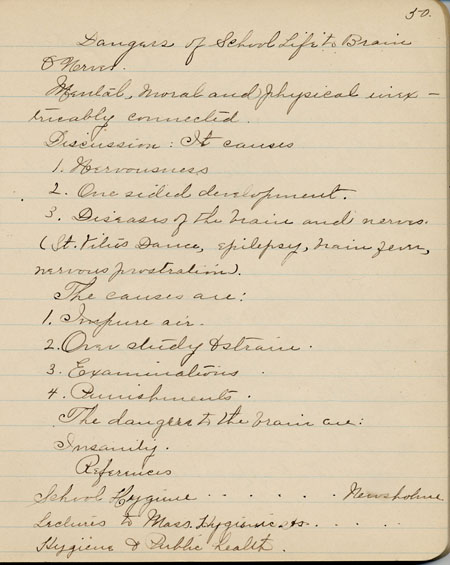 50.
Dangers of School Life to Brain
& Nerves.
Mental, moral and physical inex-
tricably connected.
Discussion: It causes
1. Nervousness
2. One sided development.
3. Diseases of the brain and nerves.
(St. Vitus Dance, epilepsy, brain fever,
nervous prostration).
The causes are:
1. Impure air.
2. Over study & strain.
3. Examinations.
4. Punishments.
The dangers to the brain are:
Insanity.
References
School Hygiene . . . . . . Newsholme
Lectures to Mass. Hygienic . . . . .
Hygiene & Public health.